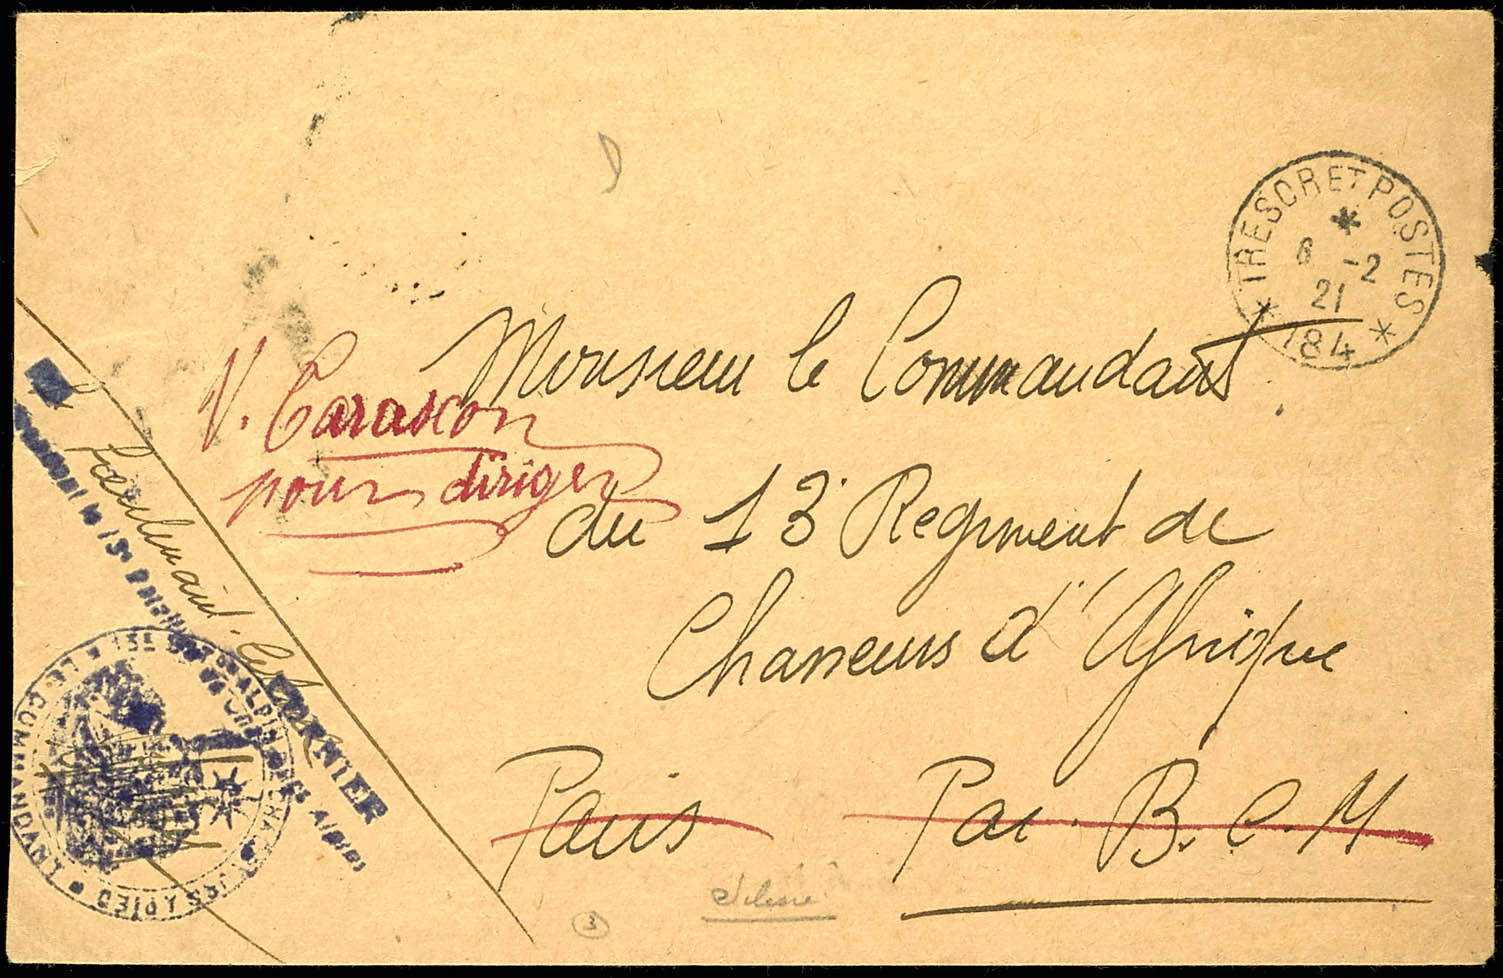 TRESOR ET POSTES
6 -2
21
* 184 *
Monsieur le Commandant
V. Tarascon
pour diriger
du 13e Regiment de
Chasseurs d'Afrique
Paris Par. B. C. M
Silésie
3
Commandant le 13e Bataillon de Chasseurs Alpins
CORNIER
LE COMMANDANT * 13E BAT